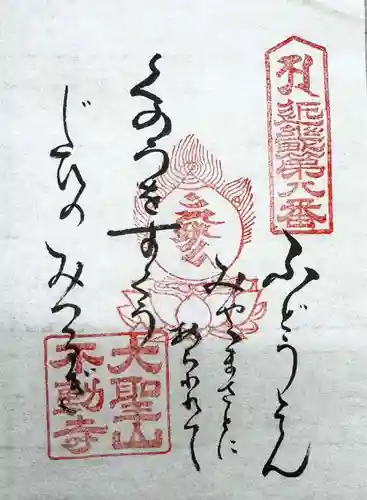 近畿第八番
ふどうそん
みやゝまさとに
あらわれて
くのうをすくう
じひの みつるぎ
大聖山
不動寺